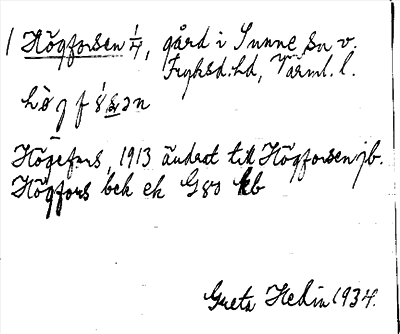 1 Högforsen 1/4, gård i Sunne sn v.
Fryksd. hd, Värml. l.
Högfors, 1913 ändrat till Högforsen jb.
Högfors bek ek G80 kb
Greta Hedin 1934.